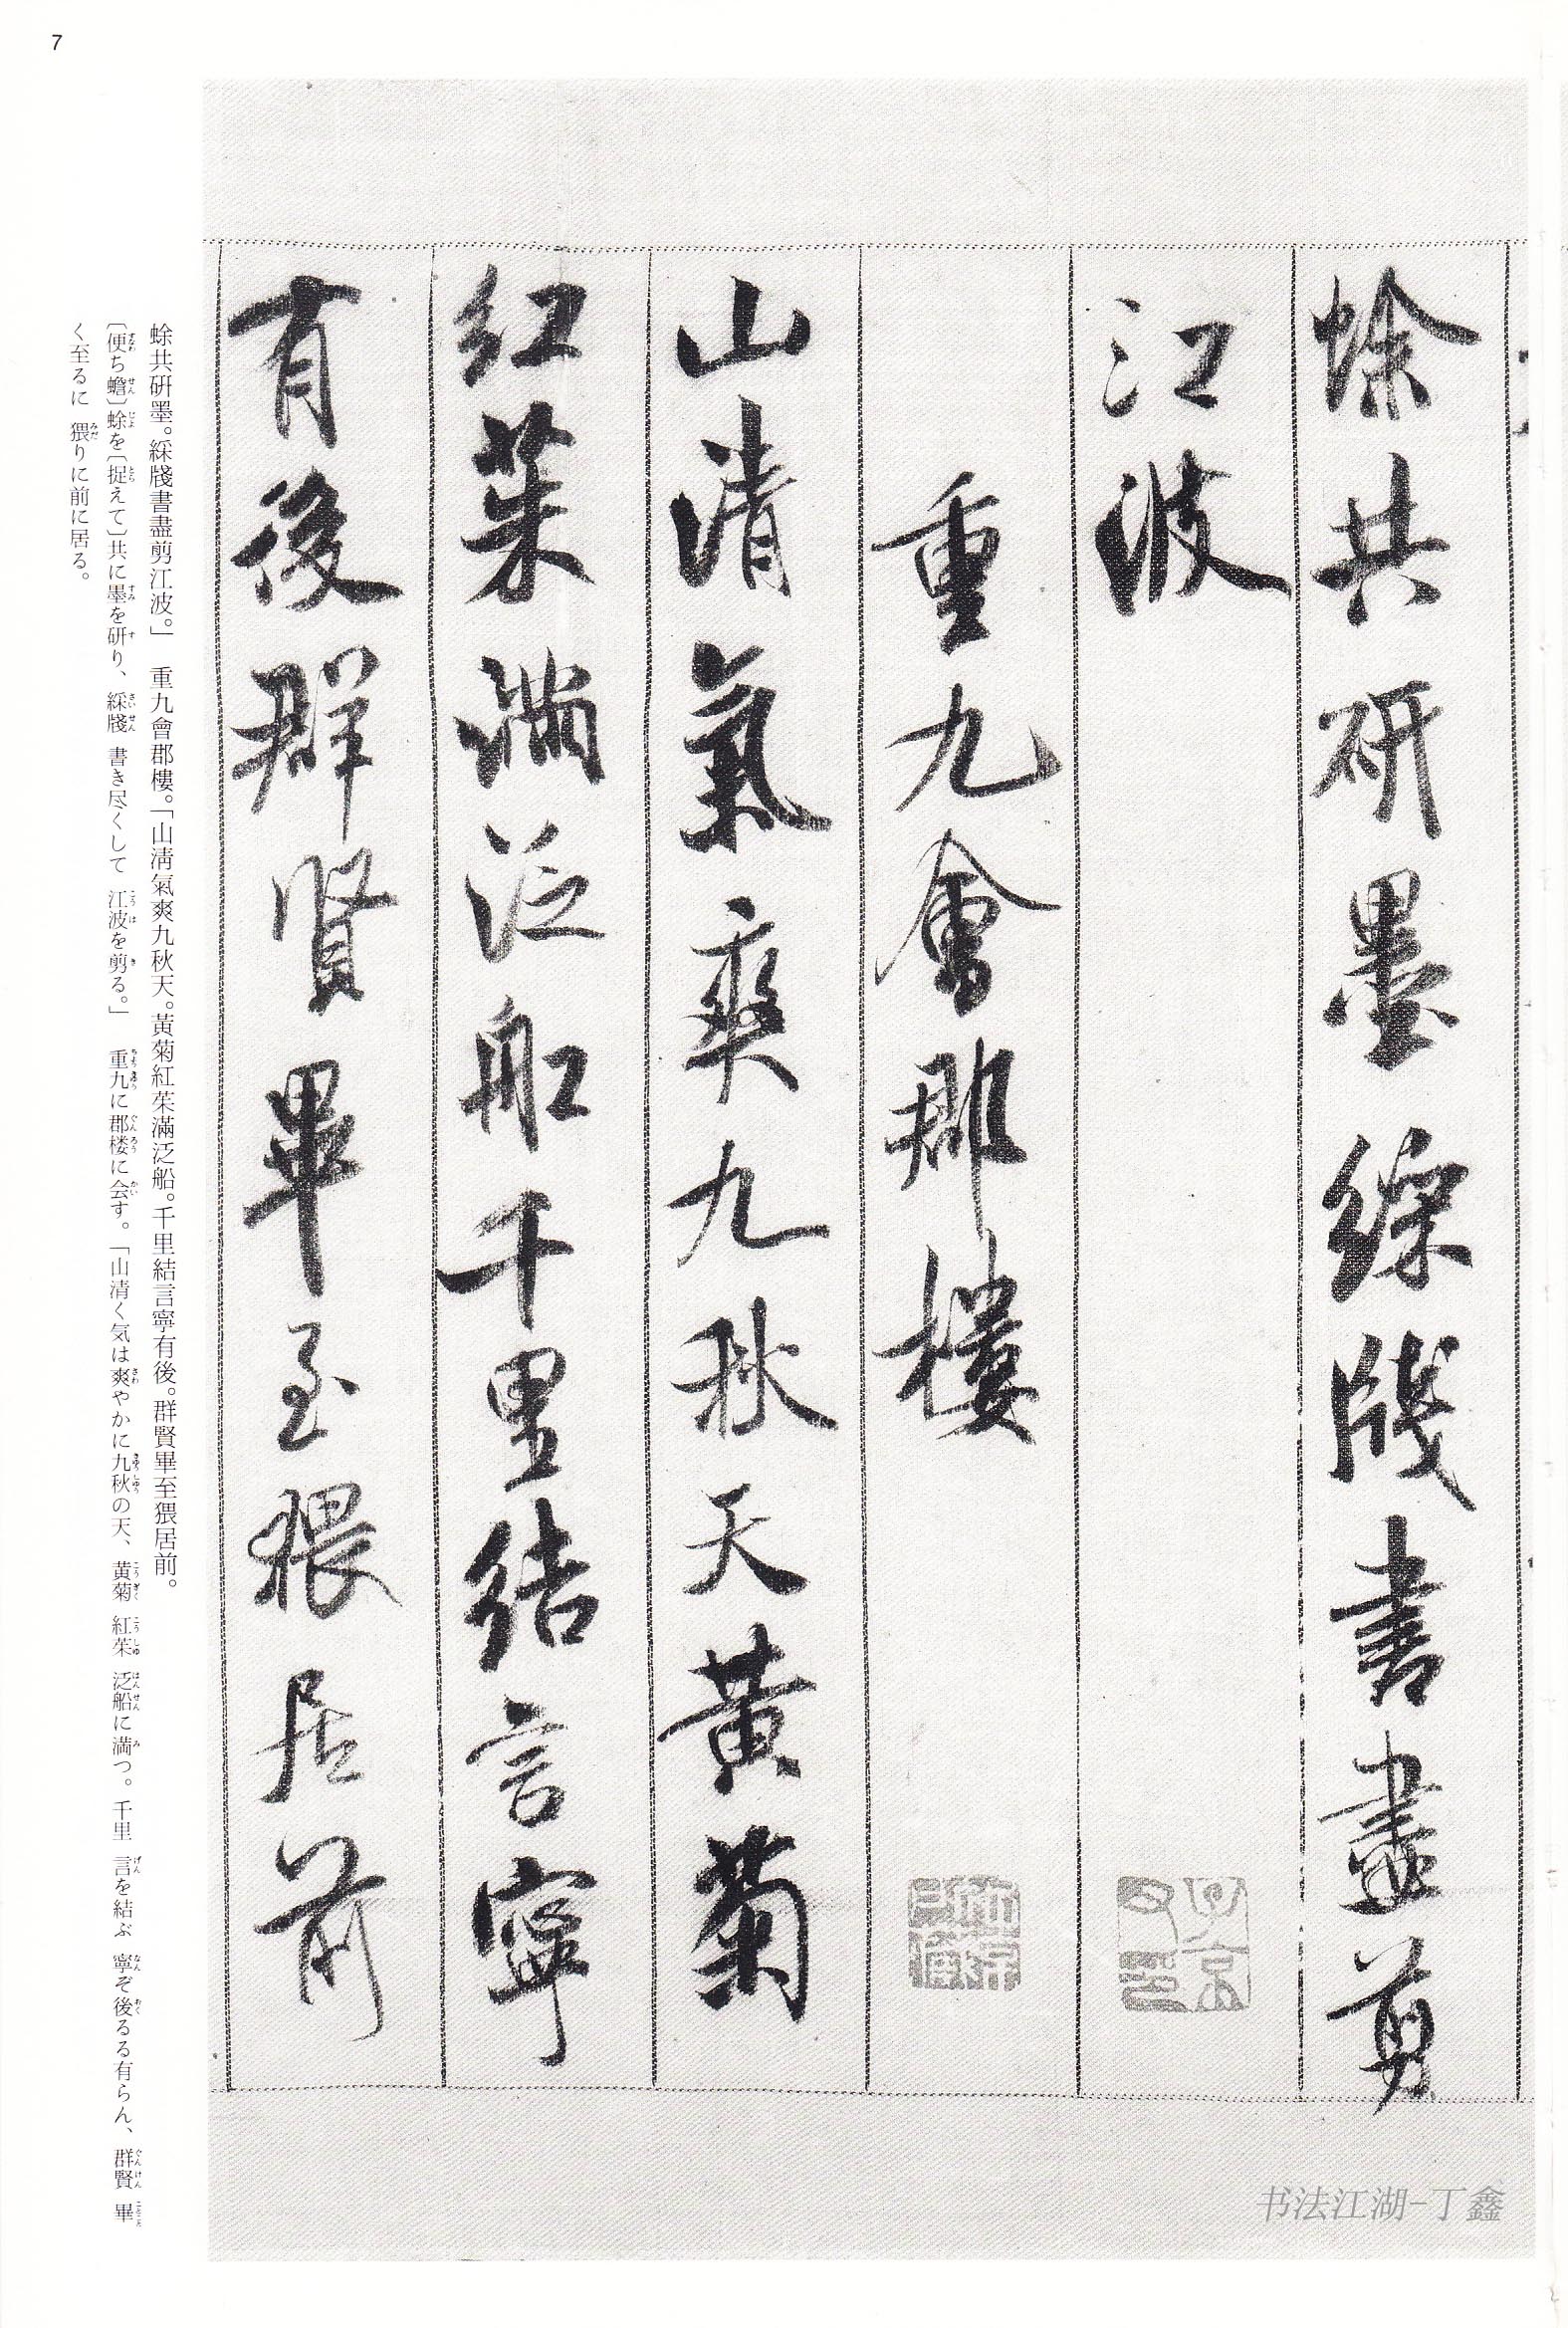 7
蜍共研墨綵牋書盡剪
江波
重九會郡樓
山清氣爽九秋天黃菊
紅茱滿泛船千里結言寧
有後群賢畢至猥居前
蜍共硏墨。綵牋書盡剪江波。」　重九會郡樓。「山淸氣爽九秋天。黃菊紅茱滿泛船。千里結言寧有後。群賢畢至猥居前。
〔便ち蟾〕蜍を〔捉えて〕共に墨を研り、綵牋　書き尽くして　江波を剪る。」　重九に郡楼に会す。「山清く気は爽やかに九秋の天、黄菊　紅茱　泛船に満つ。千里　言を結ぶ　寧ぞ後るる有らん、群賢　畢
く至るに　猥りに前に居る。
书法江湖-丁鑫